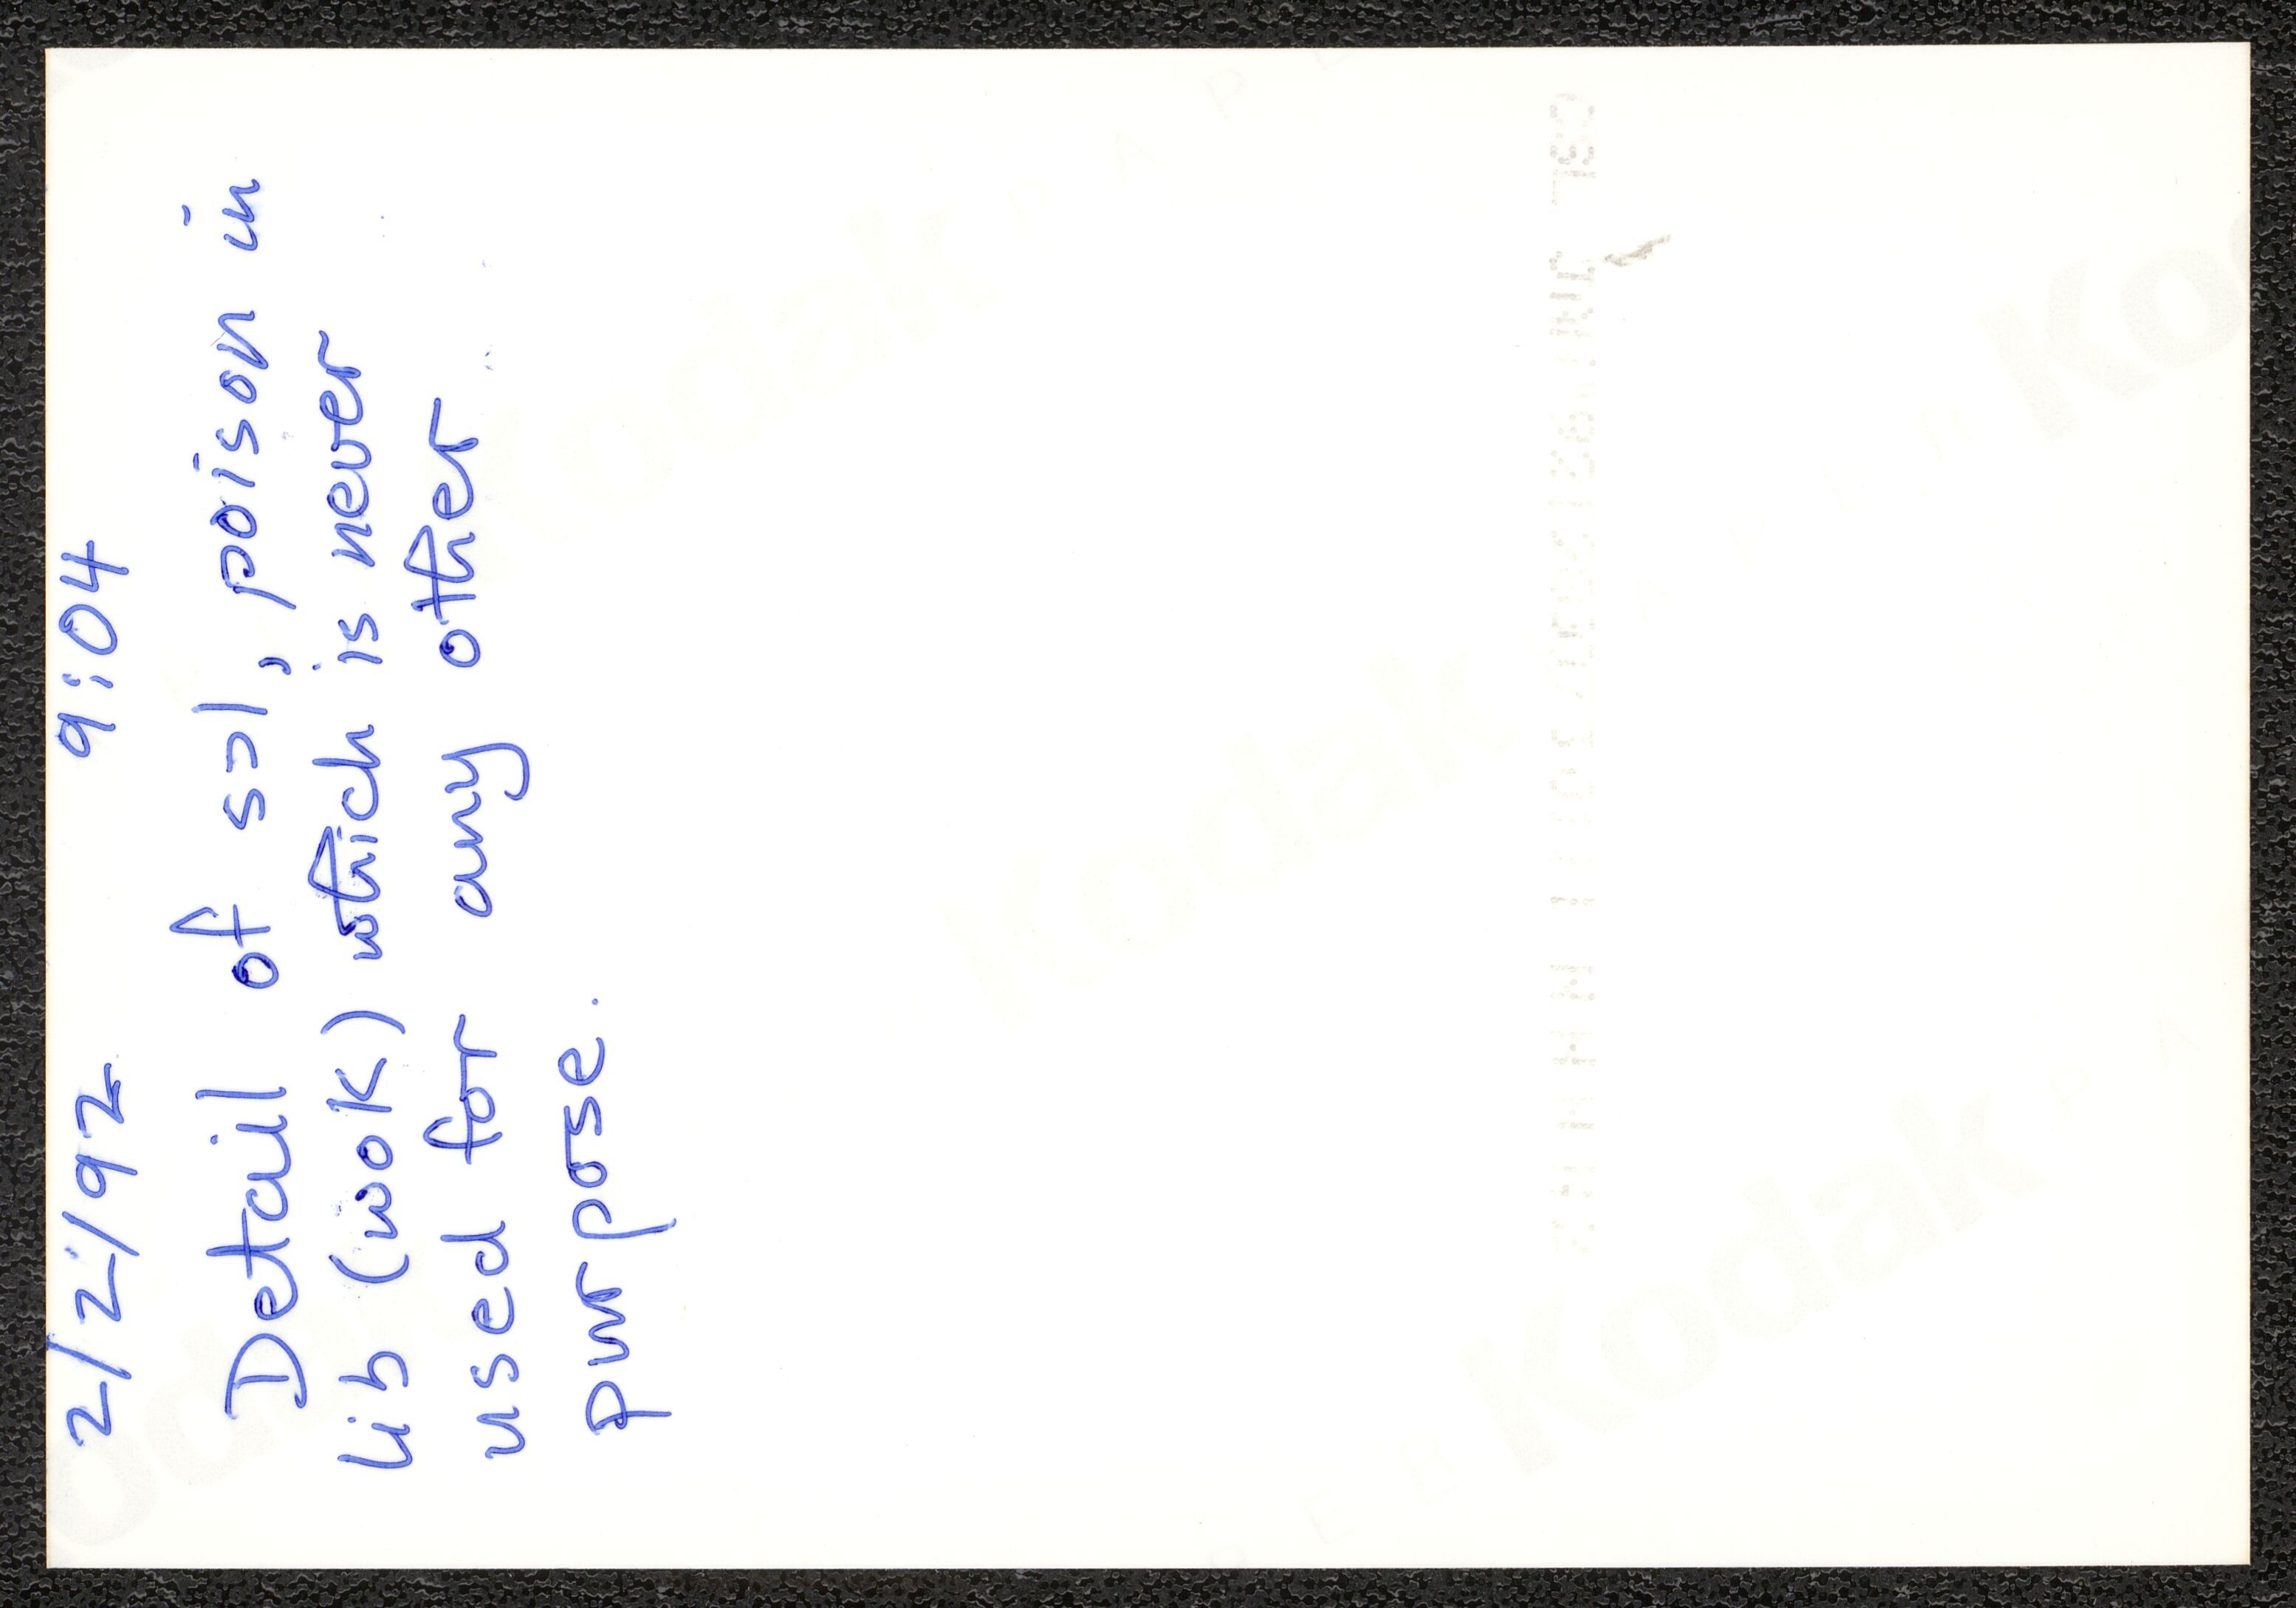 2/2/92 9:04
Detail of sɔl, poison in
lih (wok) which is never
used for any other
purpose.
Kodak
Kodak
Kodak
Kodak